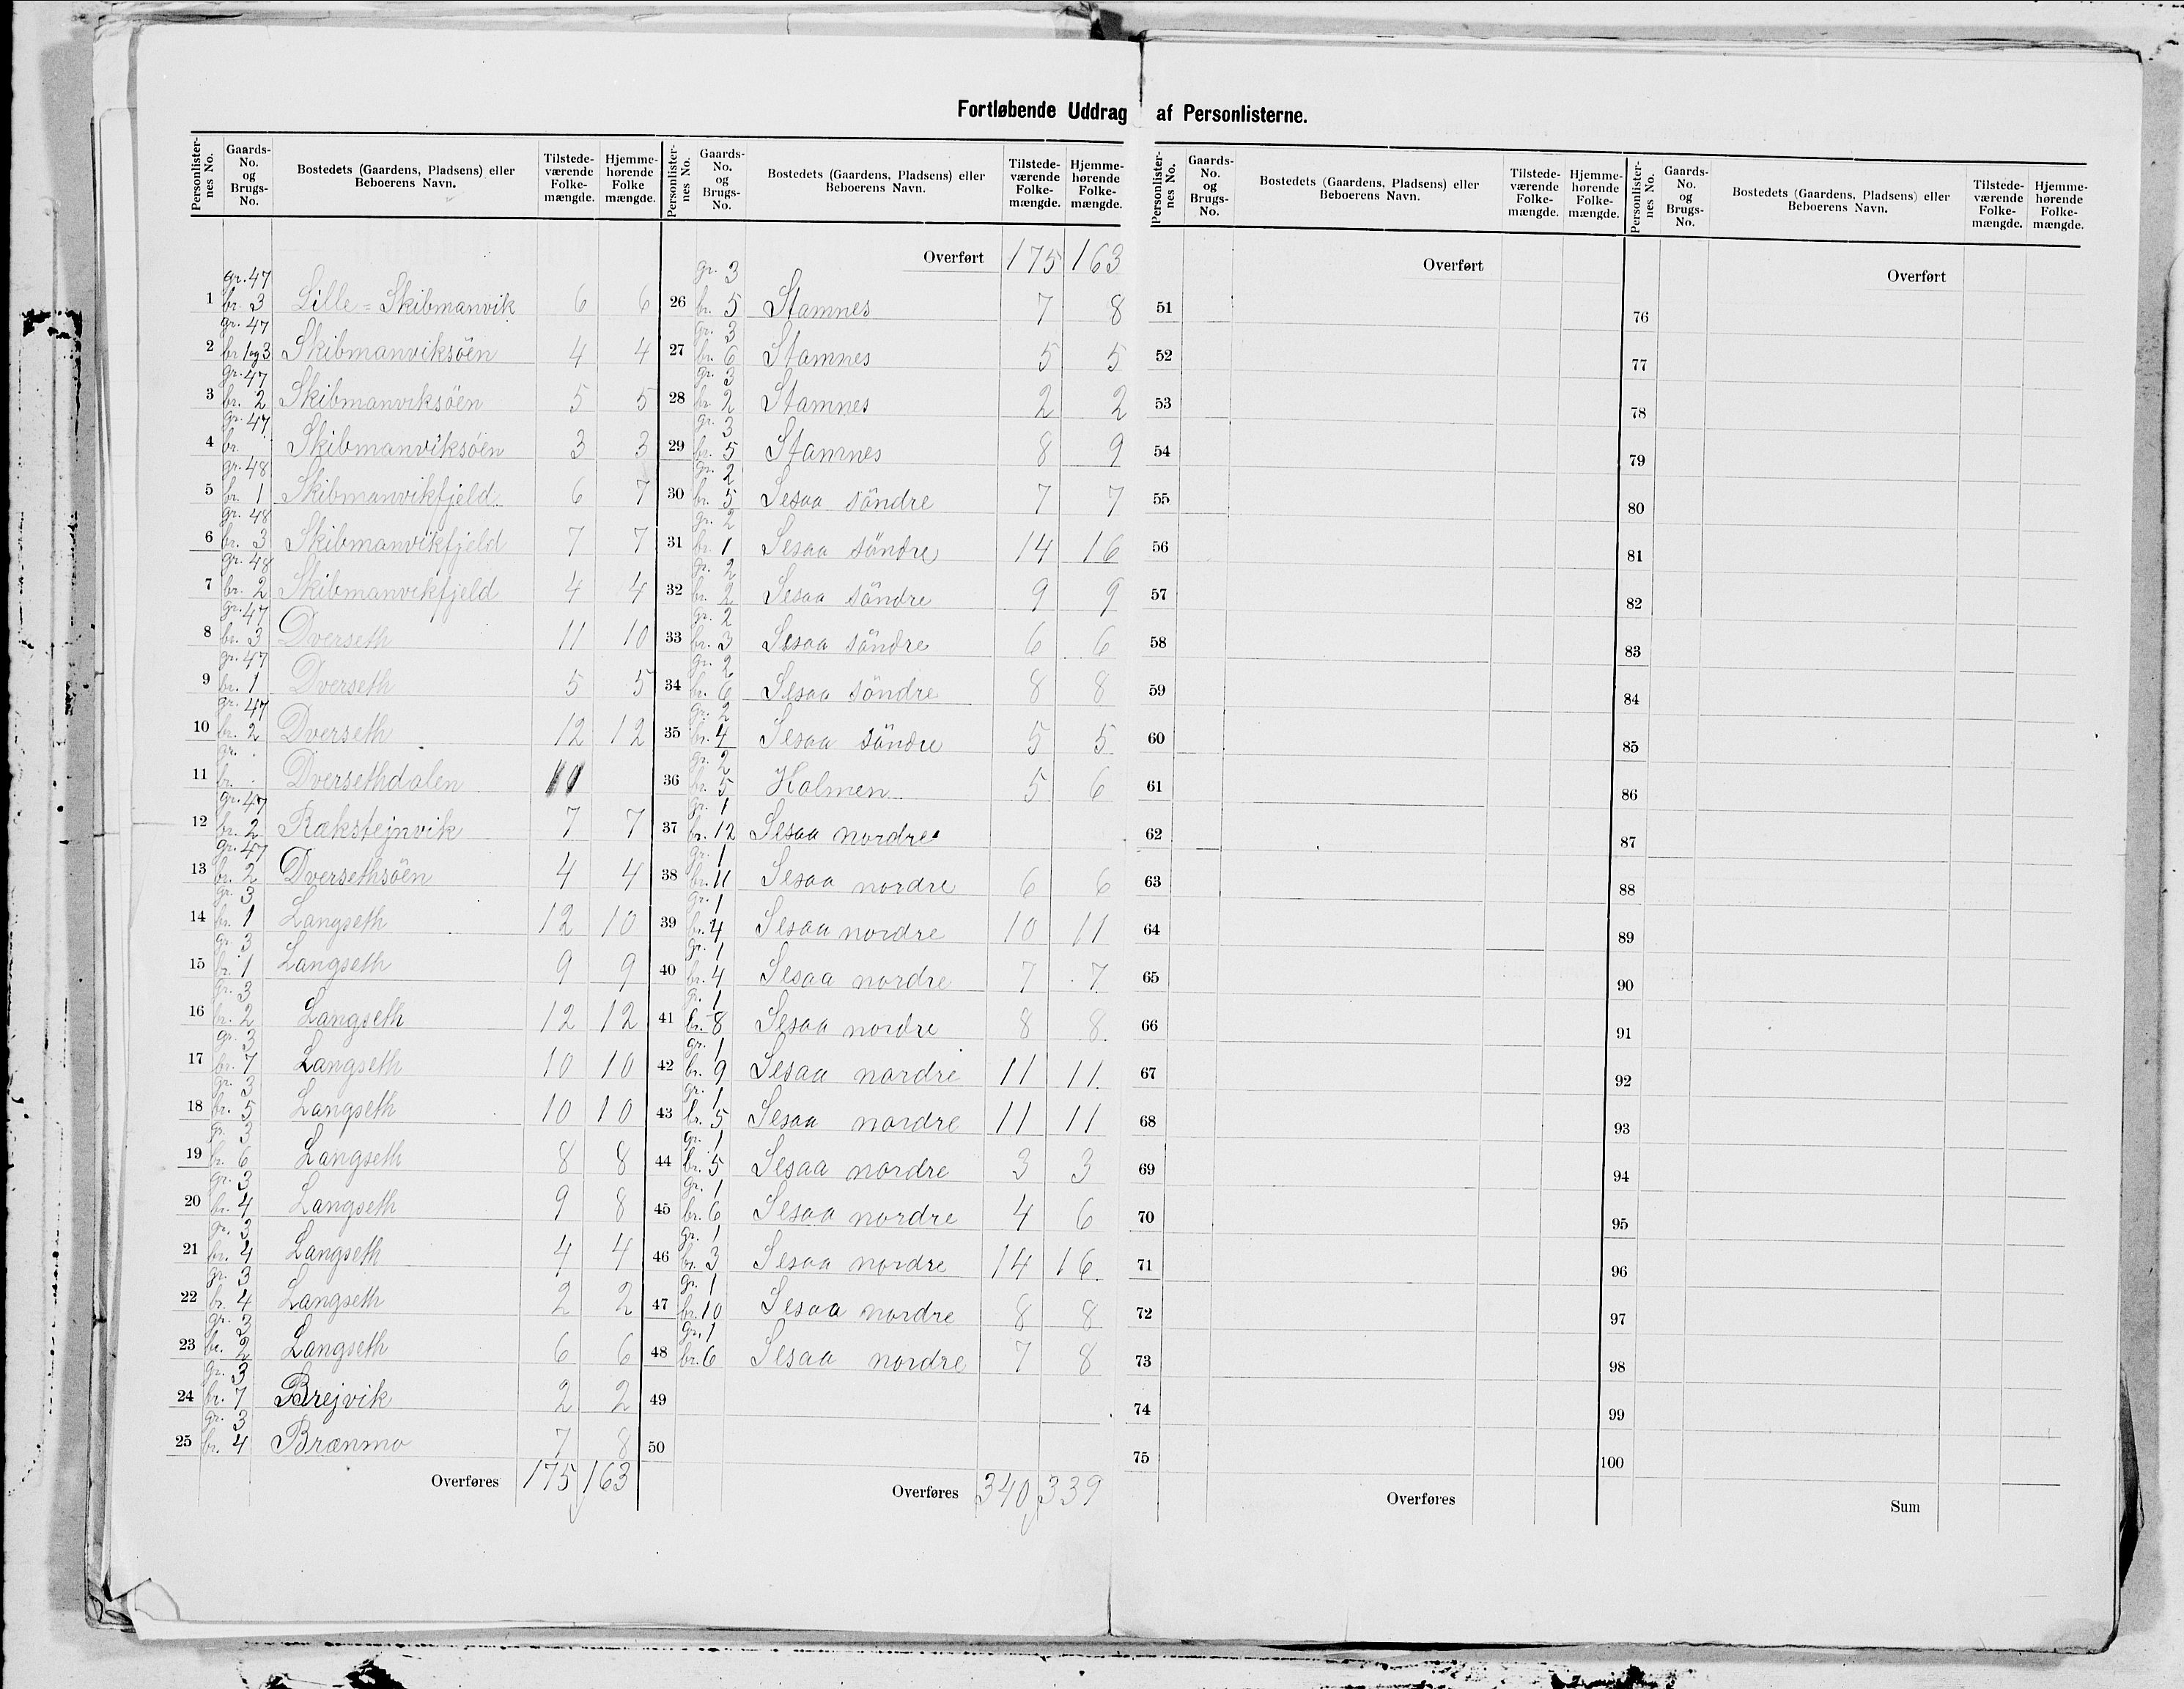 Fortløbende Uddrag af Personlisterne.
Personlister-nes No. Gaards-No. og Brugs-No. Bostedets (Gaardens, Pladsens) eller Beboerens Navn. Tilstede-værende Folke-mængde. Hjemme-hørende Folke mængde.
gr. 47
1 br. 3 Lille=Skibmanvik 6 6
gr. 47
2 br 1og3 Skibmanviksöen 4 4
gr. 47
3 br. 2 Skibmanviksöen 5 5
gr. 47
4 br. Skibmanviksöen 3 3
gr. 48
5 br. 1 Skibmanvikfjeld 6 7
gr. 48
6 br. 3 Skibmanvikfjeld 7 7
gr. 48
7 br. 2 Skibmanvikfjeld 4 4
gr. 47
8 br. 3 Dverseth 11 10
gr. 47
9 br. 1 Dverseth 5 5
gr. 47
10 br. 2 Dverseth 12 12
gr. .
11 br. . Dversethdalen
gr. 47
12 br. 2 Rækstejnvik 7 7
gr. 47
13 br. 2 Dversethsöen 4 4
gr. 3
14 br. 1 Langseth 12 10
gr. 3
15 br. 1 Langseth 9 9
gr. 3
16 br. 2 Langseth 12 12
gr. 3
17 br. 7 Langseth 10 10
gr. 3
18 br. 5 Langseth 10 10
gr. 3
19 br. 6 Langseth 8 8
gr. 3
20 br. 4 Langseth 9 8
gr. 3
21 br. 4 Langseth 4 4
gr. 3
22 br. 4 Langseth 2 2
gr. 3
23 br. 2 Langseth 6 6
gr. 3
24 br. 7 Brejvik 2 2
gr. 3
25 br. 4 Brænmo 7 8
Overføres 175 163
Personlister-nes No. Gaards-No. og Brugs-No. Bostedets (Gaardens, Pladsens) eller Beboerens Navn. Tilstede-værende Folke-mængde. Hjemme-hørende Folke-mængde.
Overført 175 163
gr. 3
26 br. 5 Stamnes 7 8
gr. 3
27 br. 6 Stamnes 5 5
gr. 3
28 br. 2 Stamnes 2 2
gr. 3
29 br. 5 Stamnes 8 9
gr. 2
30 br. 5 Sesaa söndre 7 7
gr. 2
31 br. 1 Sesaa söndre 14 16
gr. 2
32 br. 2 Sesaa söndre 9 9
gr. 2
33 br. 3 Sesaa söndre 6 6
gr. 2
34 br. 6 Sesaa söndre 8 8
gr. 2
35 br. 4 Sesaa söndre 5 5
gr. 2
36 br. 5 Holmen 5 6
gr. 1
37 br. 12 Sesaa nordre
gr. 1
38 br. 11 Sesaa nordre 6 6
gr. 1
39 br. 4 Sesaa nordre 10 11
gr. 1
40 br. 4 Sesaa nordre 7 7
gr. 1
41 br. 8 Sesaa nordre 8 8
gr. 1
42 br. 9 Sesaa nordre 11 11
gr. 1
43 br. 5 Sesaa nordre 11 11
gr. 1
44 br. 5 Sesaa nordre 3 3
gr. 1
45 br. 6 Sesaa nordre 4 6
gr. 1
46 br. 3 Sesaa nordre 14 16
gr. 1
47 br. 10 Sesaa nordre 8 8
gr. 1
48 br. 6 Sesaa nordre 7 8
49
50
Overføres 340 339
Personlister-nes No. Gaards-No. og Brugs-No. Bostedets (Gaardens, Pladsens) eller Beboerens Navn. Tilstede-værende Folke-mængde. Hjemme-hørende Folke-mængde.
Overført
51
52
53
54
55
56
57
58
59
60
61
62
63
64
65
66
67
68
69
70
71
72
73
74
75
Overføres
Personlister-nes No. Gaards-No. og Brugs-No. Bostedets (Gaardens, Pladsens) eller Beboerens Navn. Tilstede-værende Folke-mængde. Hjemme-hørende Folke-mængde.
Overført
76
77
78
79
80
81
82
83
84
85
86
87
88
89
90
91
92
93
94
95
96
97
98
99
100
Sum